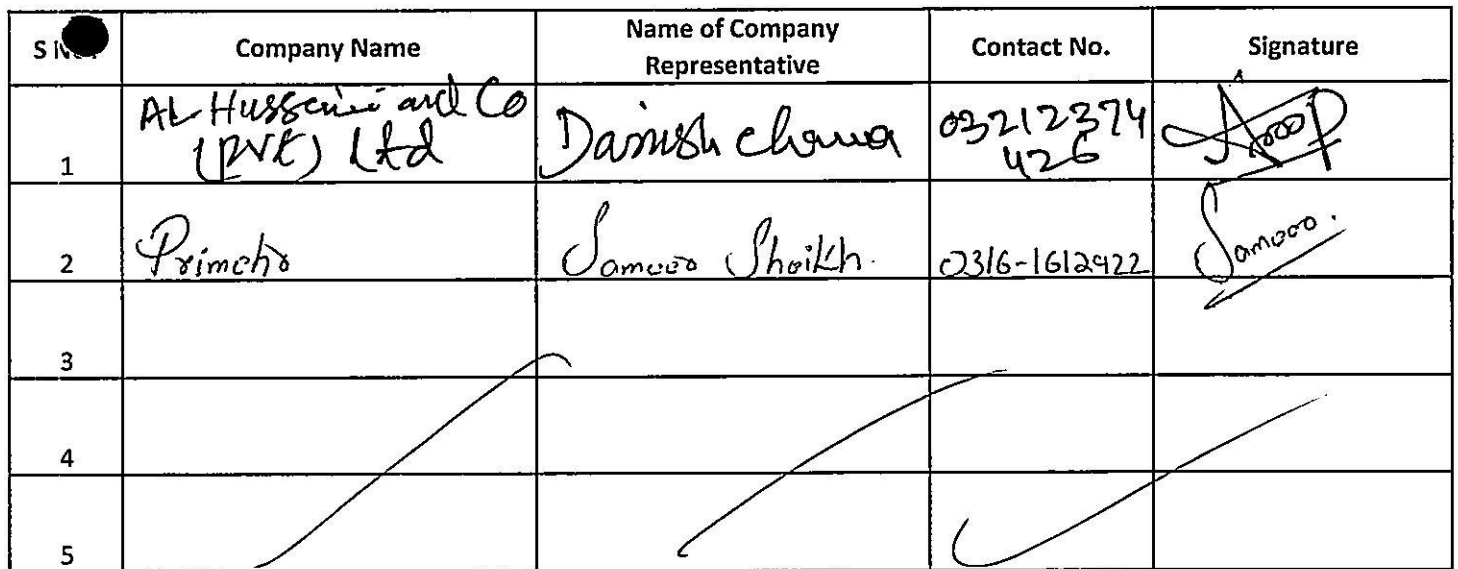 S No. Company Name Name of Company Representative Contact No. Signature
1 AL Hussaini and Co (PVt) Ltd Danish 03212374 426
2 Sameer Shaikh. 0316-1612922 Sameer.
3
4
5